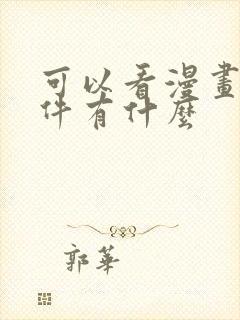 可以看漫畫
件有什麼
郭華